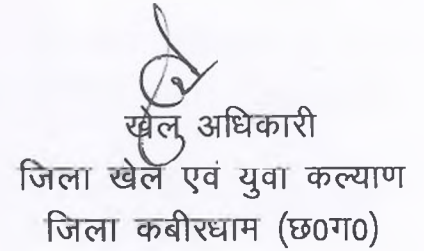 खेल अधिकारी
जिला खेल एवं युवा कल्याण
जिला कबीरधाम (छ0ग0)